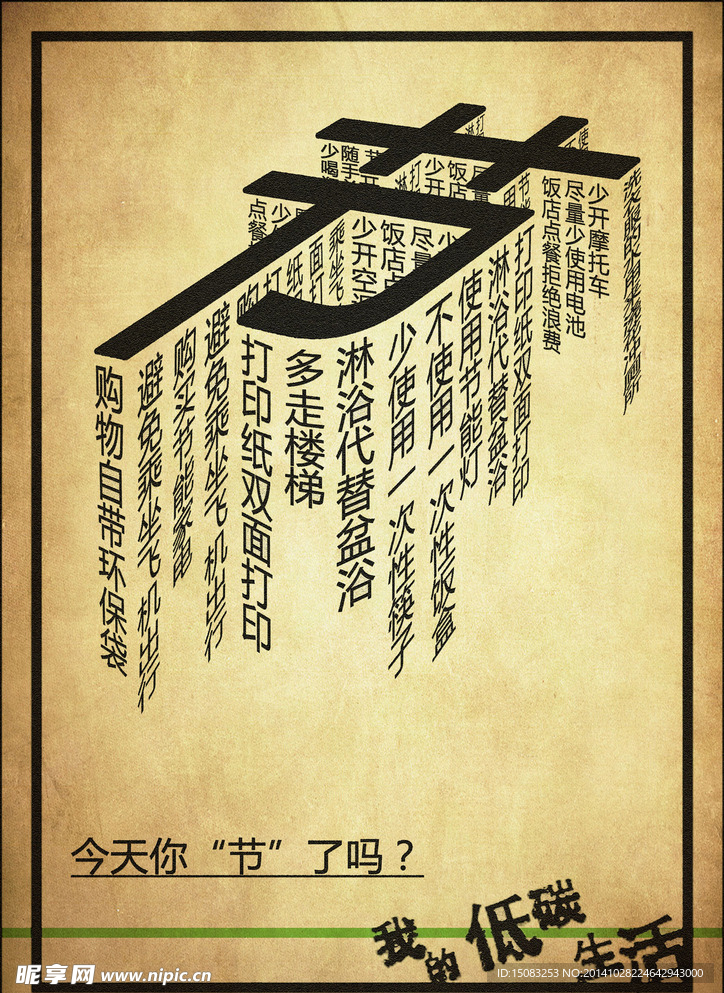 节
购物自带环保袋
避免乘坐飞机出行
购买节能家电
避免乘坐飞机出行
打印纸双面打印
多走楼梯
淋浴代替盆浴
少使用一次性筷子
不使用一次性饭盒
使用节能灯
淋浴代替盆浴
打印纸双面打印
饭店点餐拒绝浪费
尽量少使用电池
少开摩托车
今天你“节”了吗？
我的低碳生活
昵享网 www.nipic.cn
ID:15083253 NO:20141028224642943000